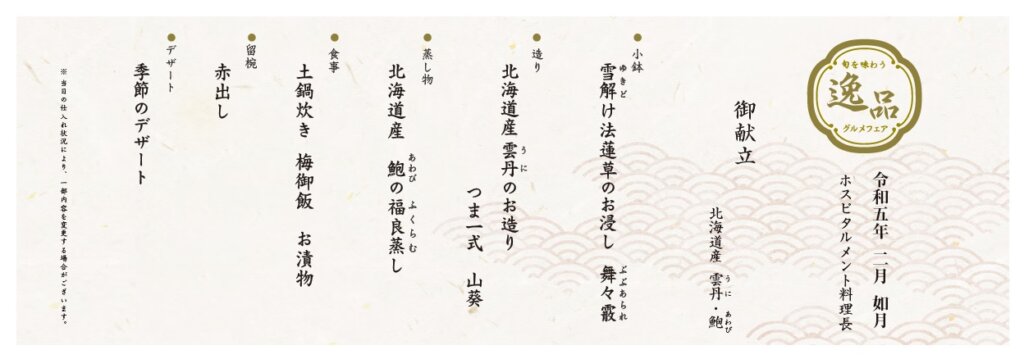 旬を味わう
逸品
グルメフェア
令和五年 二月 如月
ホスピタルメント料理長
御献立
北海道産 雲丹・鮑
うに あわび
小鉢
雪解け法蓮草のお浸し 舞々霰
ゆきど ぶぶあられ
造り
北海道産 雲丹のお造り
うに
つま一式 山葵
蒸し物
北海道産 鮑の福良蒸し
あわび ふくらむ
食事
土鍋炊き 梅御飯 お漬物
留椀
赤出し
デザート
季節のデザート
※ 当日の仕入れ状況により、一部内容を変更する場合がございます。